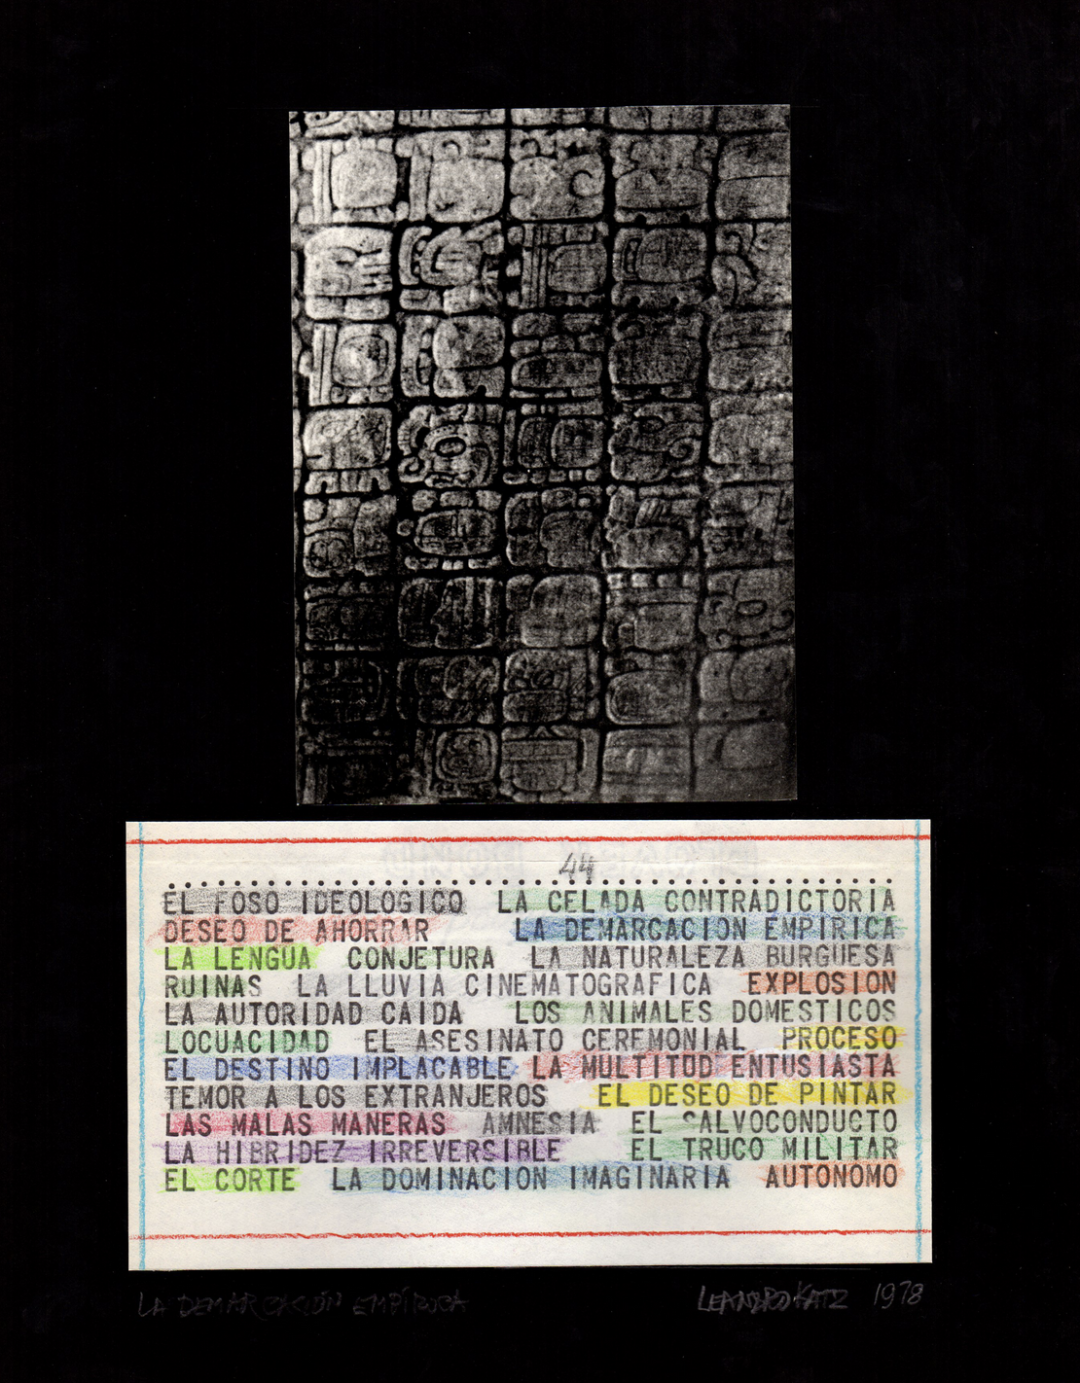 44
EL FOSO IDEOLOGICO LA CELADA CONTRADICTORIA
DESEO DE AHORRAR LA DEMARCACION EMPIRICA
LA LENGUA CONJETURA LA NATURALEZA BURGUESA
RUINAS LA LLUVIA CINEMATOGRAFICA EXPLOSION
LA AUTORIDAD CAIDA LOS ANIMALES DOMESTICOS
LOCUACIDAD EL ASESINATO CEREMONIAL PROCESO
EL DESTINO IMPLACABLE LA MULTITUD ENTUSIASTA
TEMOR A LOS EXTRANJEROS EL DESEO DE PINTAR
LAS MALAS MANERAS AMNESIA EL SALVOCONDUCTO
LA HIBRIDEZ IRREVERSIBLE EL TRUCO MILITAR
EL CORTE LA DOMINACION IMAGINARIA AUTONOMO
LA DEMARCACIÓN EMPÍRICA LEANDRO KATZ 1978